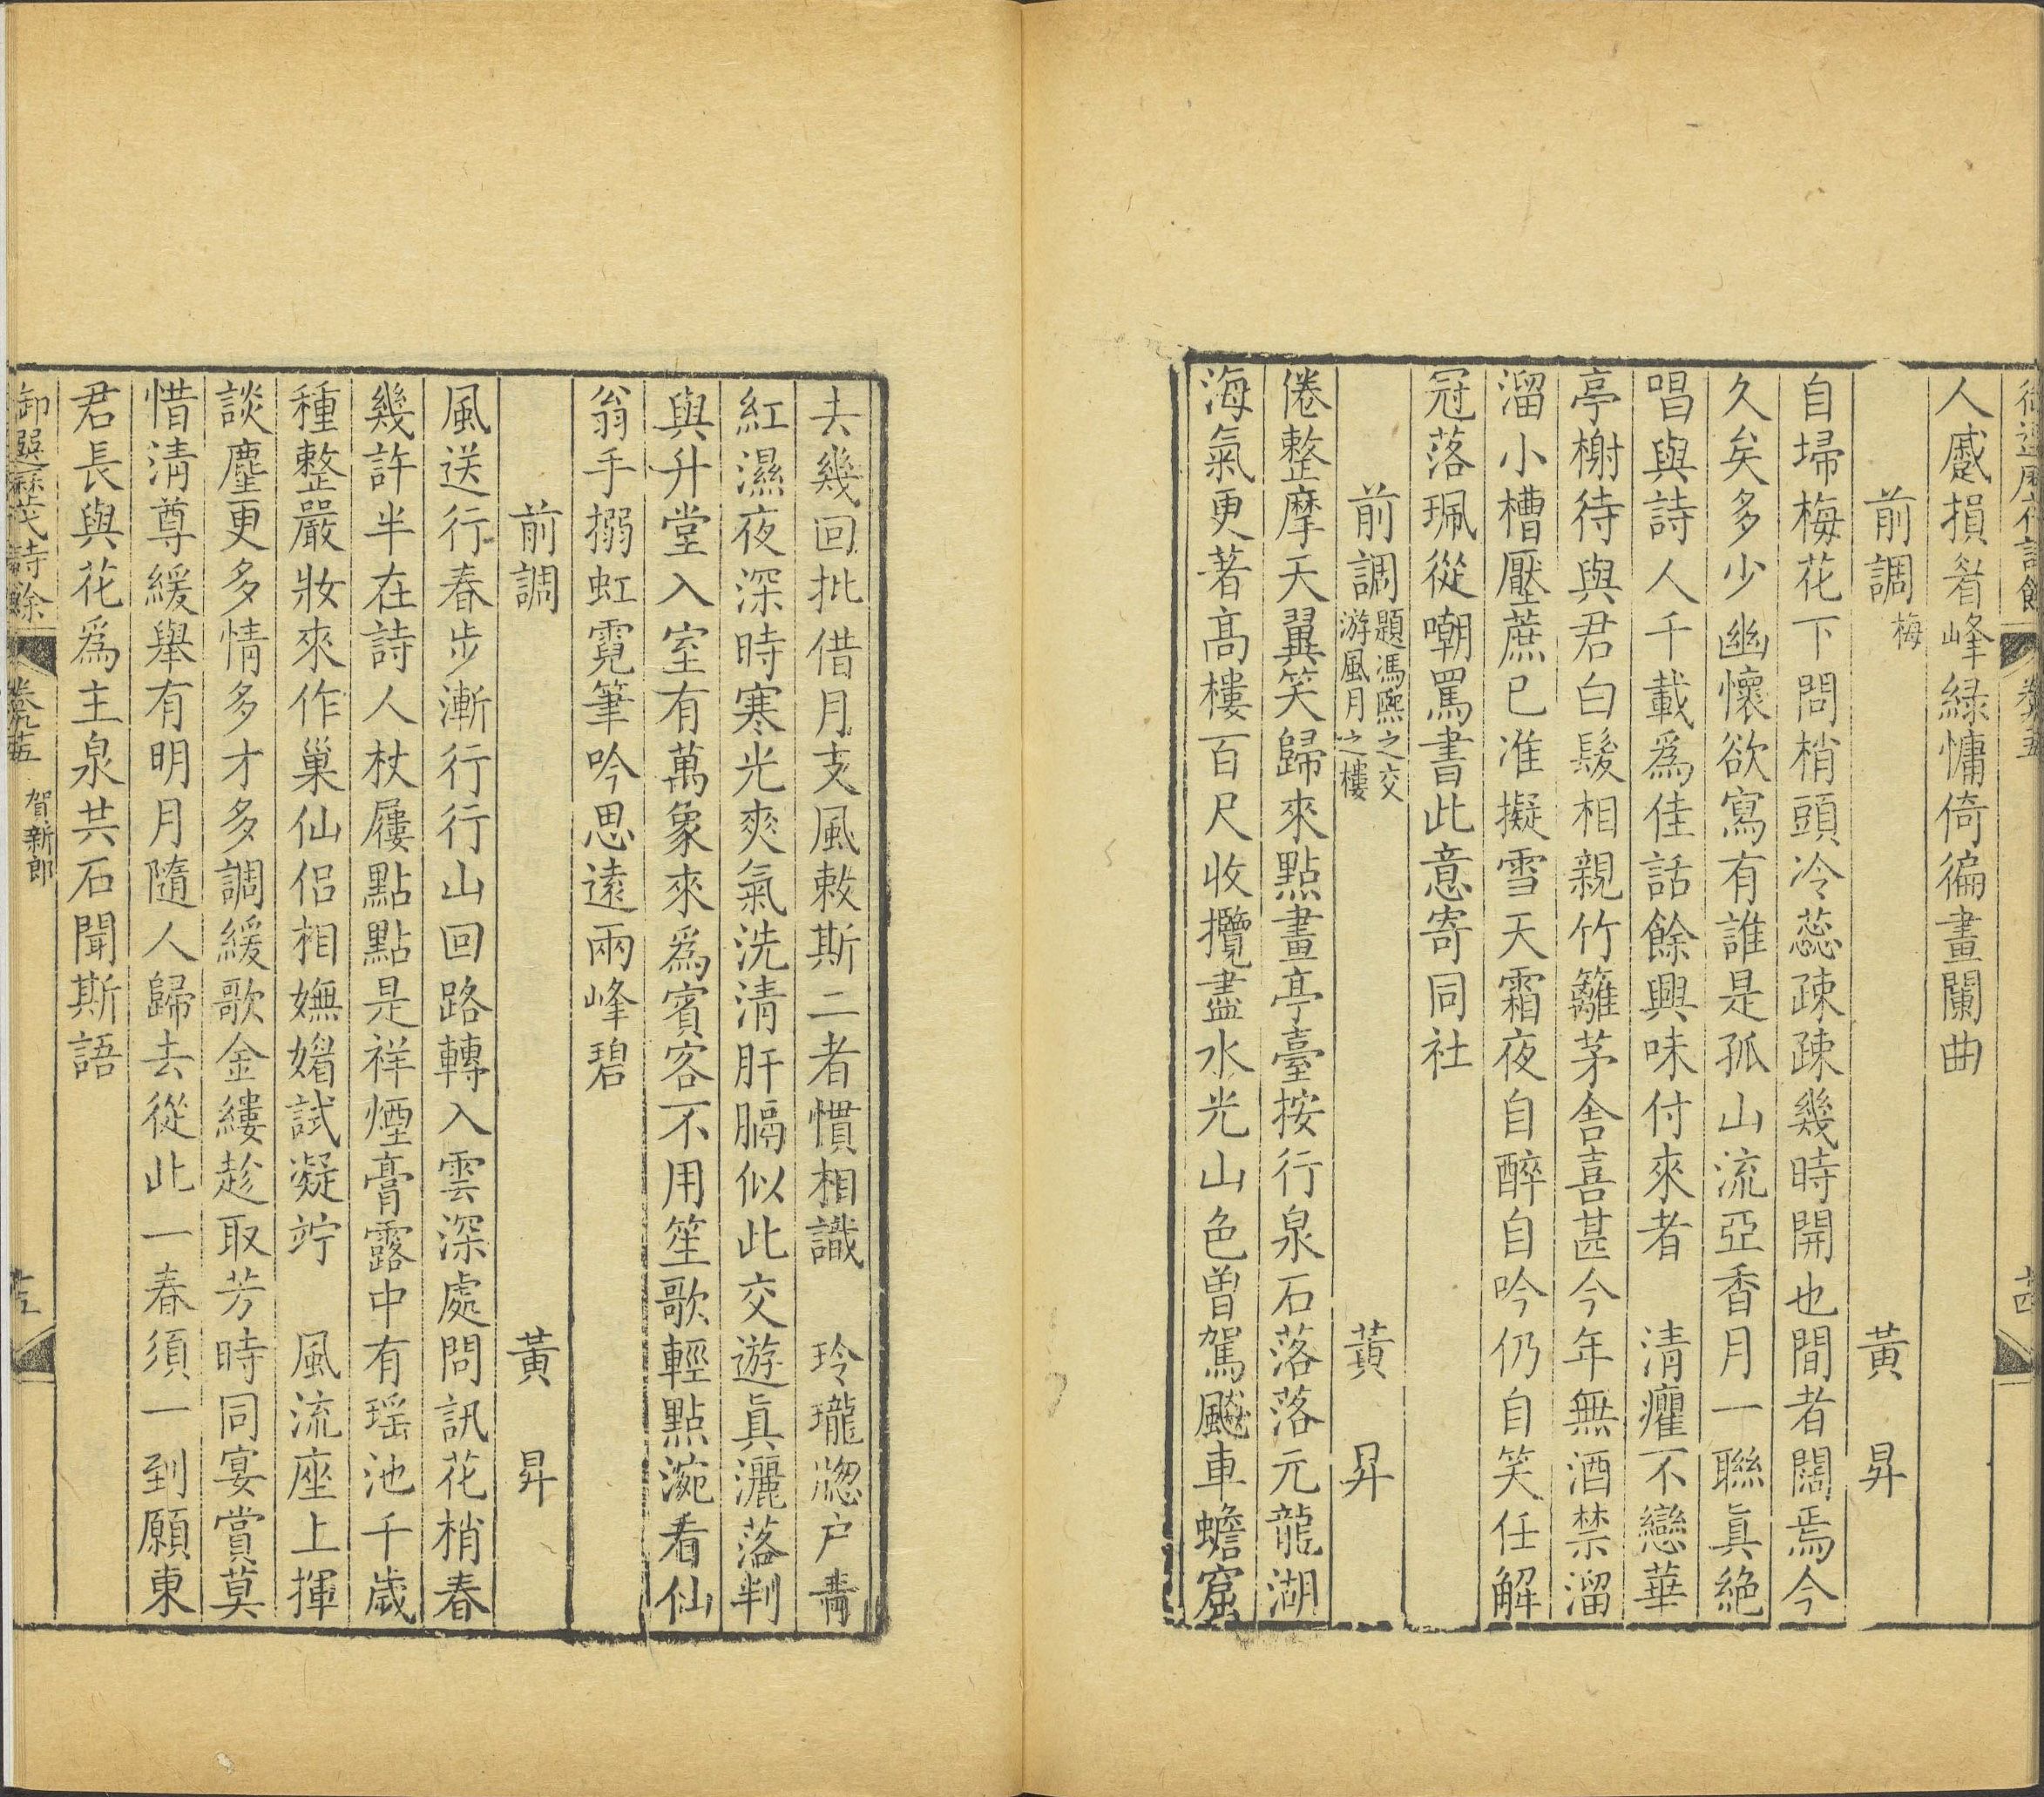 御選歷代詩餘
卷九十五
十四
人感損眉峰綠慵倚徧畫闌曲
前調 梅 黃昇
自埽梅花下問梢頭冷蕊疎疎幾時開也間者闊焉今
久矣多少幽懷欲寫有誰是孤山流亞香月一聯眞絕
唱與詩人千載爲佳話餘興味付來者 清癯不戀華
亭榭待與君白髮相親竹籬茅舍喜甚今年無酒禁溜
溜小槽壓蔗已准擬雪天霜夜自醉自吟仍自笑任解
冠落珮從嘲罵書此意寄同社
前調 題馮熙之交
游風月之樓 黃昇
倦整摩天翼笑歸來點畫亭臺按行泉石落落元龍湖
海氣更著高樓百尺收攬盡水光山色曽駕飈車蟾窟
去幾回批借月支風敕斯二者慣相識 玲瓏牎户靑
紅濕夜深時寒光爽氣洗清肝膈似此交遊眞灑落判
與升堂入室有萬象來爲賓客不用笙歌輕點涴看仙
翁手搦虹霓筆吟思遠兩峰碧
前調 黃昇
風送行春步漸行行山回路轉入雲深處問訊花梢春
幾許半在詩人杖屨點點是祥煙膏露中有瑶池千歲
種整嚴妝來作巢仙侣相嫵媚試凝竚 風流座上揮
談麈更多情多才多調緩歌金縷趁取芳時同宴賞莫
惜清尊緩舉有明月隨人歸去從此一春須一到願東
君長與花爲主泉共石聞斯語
御選歷代詩餘
卷九十五 賀新郎
十五